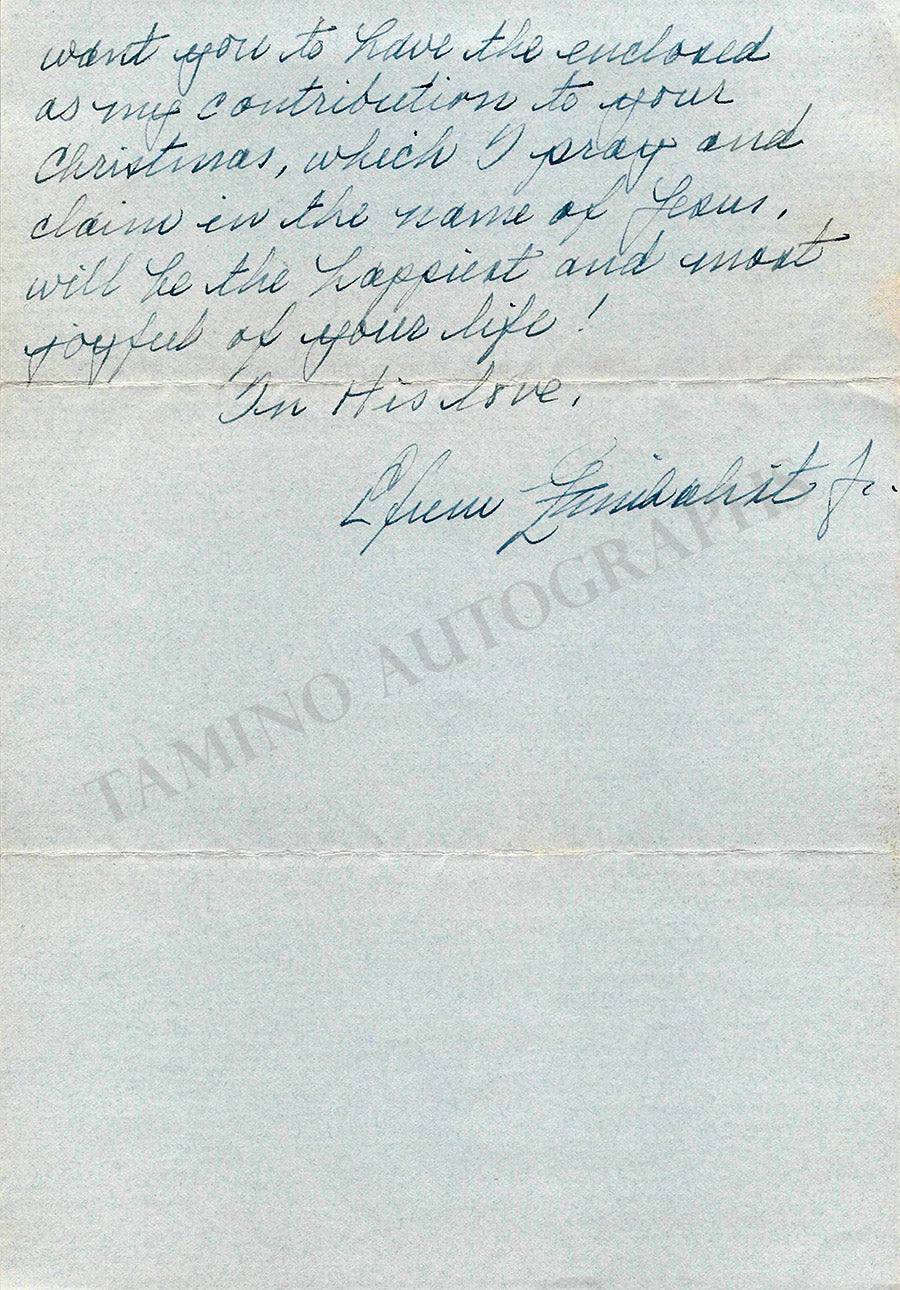 want you to have the enclosed
as my contribution to your
Christmas, which I pray and
claim in the name of Jesus,
will be the happiest and most
joyful of your life!
In His love,
Efrem Zimbalist Jr.
TAMINO AUTOGRAPHS